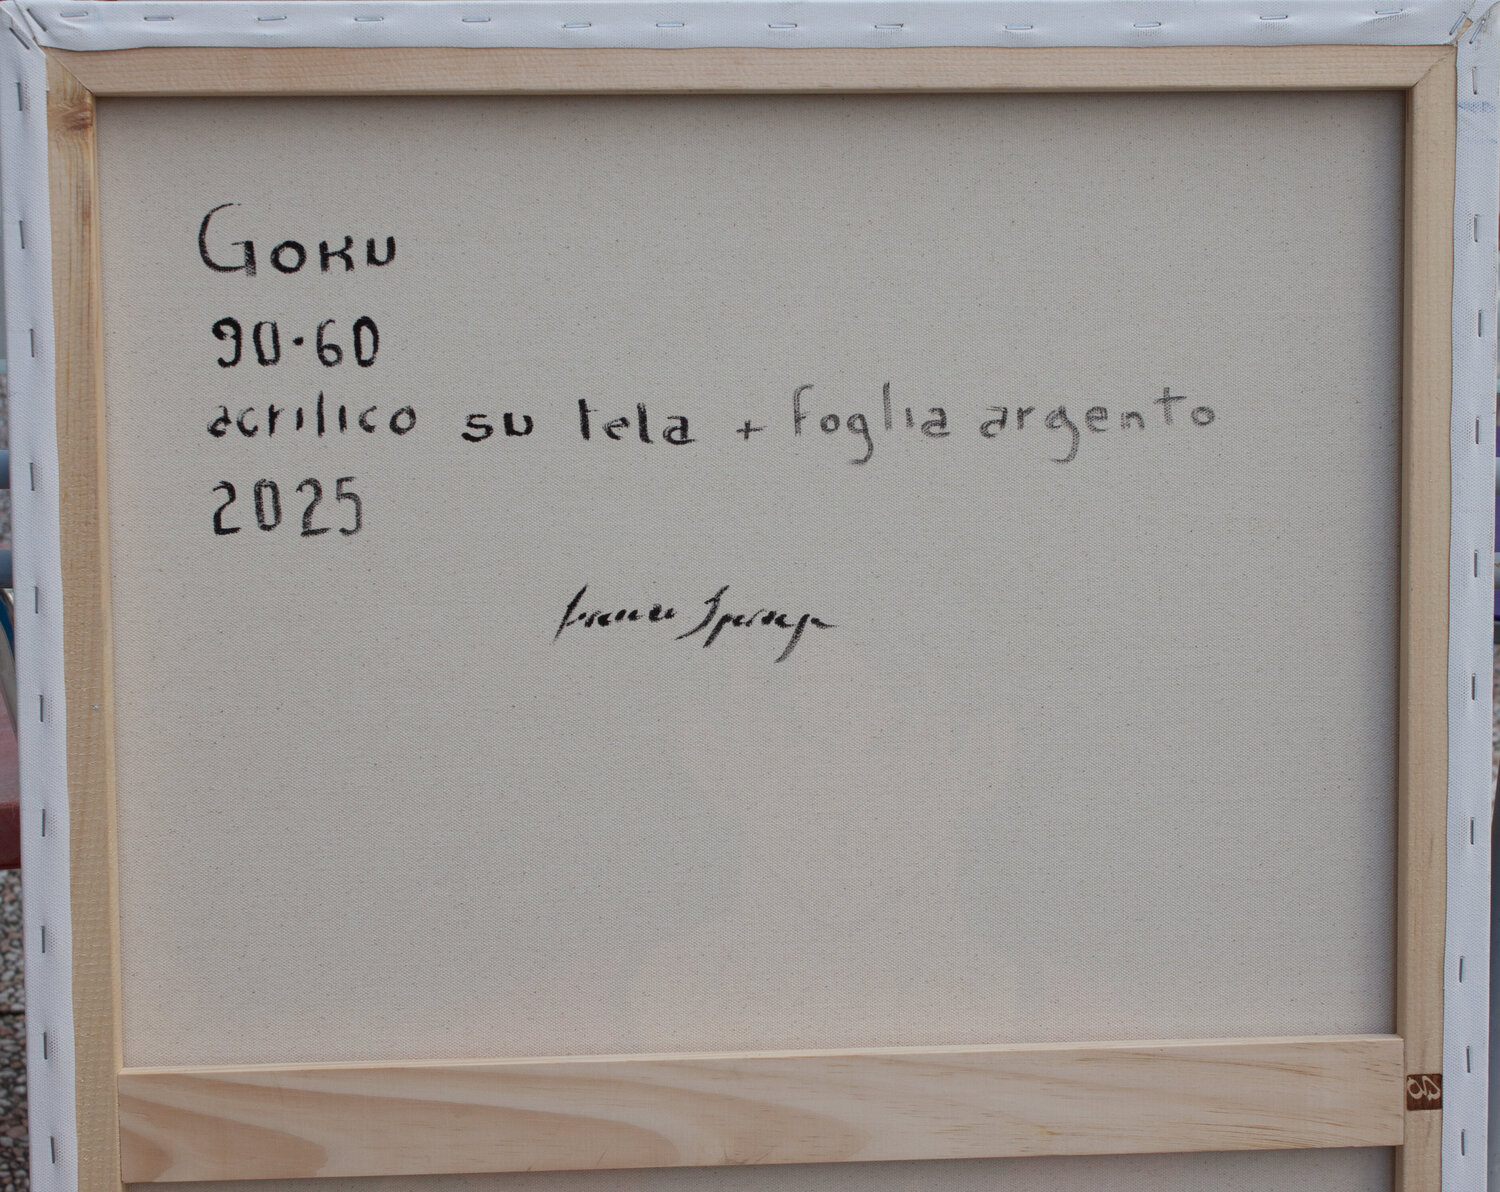 Goku
90·60
acrilico su tela + foglia argento
2025